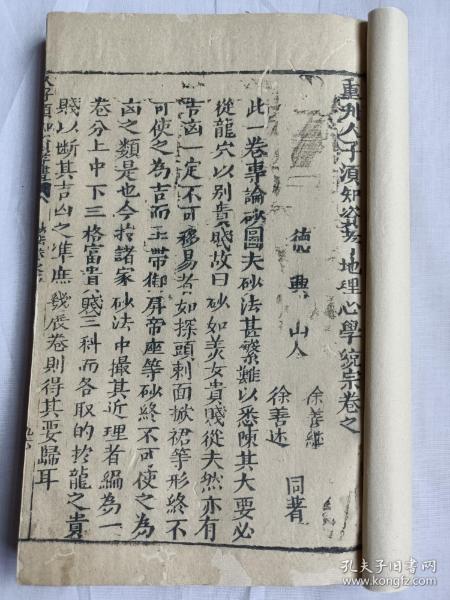 重刋人子須知資孝地理心學統宗卷之
徐善繼
德興山人
徐善述
同著
此一卷專論砂圖夫砂法甚繁難以悉陳其大要必
從龍穴以別貴賤故曰砂如美女貴賤從夫然亦有
吉凶一定不可移易者如探頭刺面掀裙等形終不
可使之為吉而玉帶御屏帝座等砂終不可使之為
凶之類是也今於諸家砂法中撮其近理者編為一
卷分上中下三格富貴賤三科而各取的於龍之貴
賤以斷其吉凶之準庶幾展卷則得其要歸耳
孔夫子旧书网
www.kongfz.com